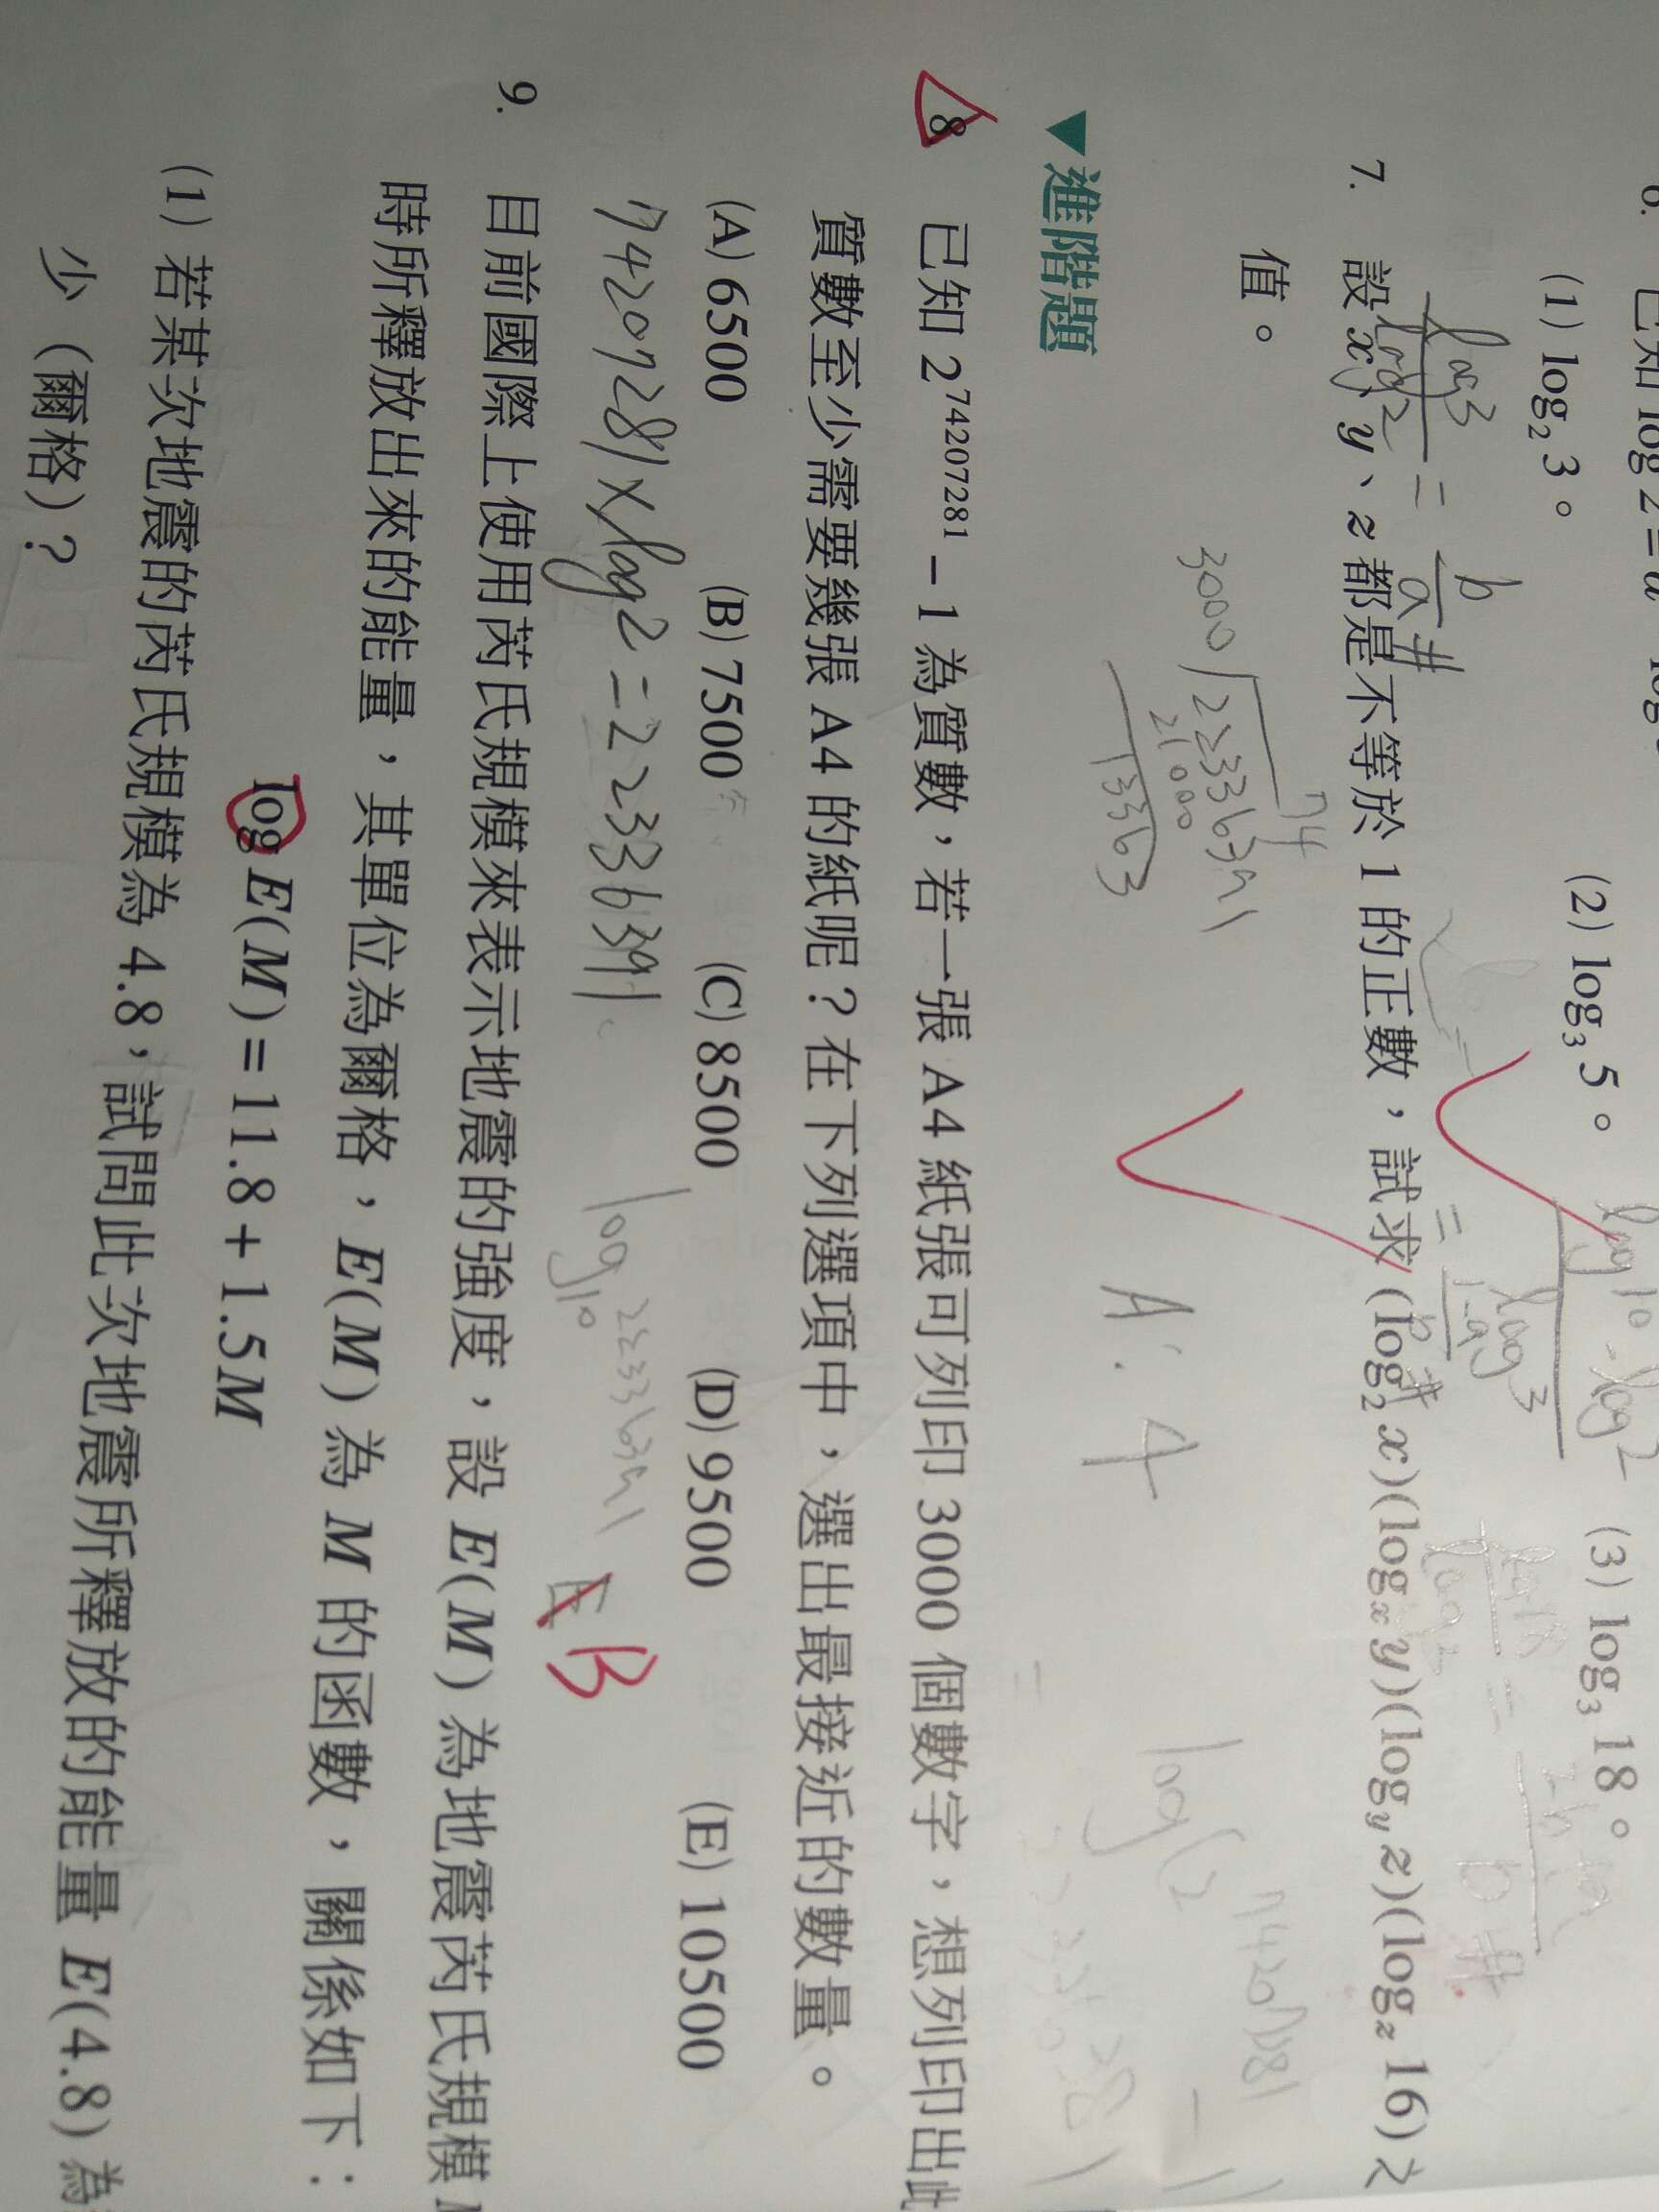 6. 已知 log 2 = a
(1) log₂ 3。 (2) log₃ 5。 (3) log₃ 18。
log3/log2 = b/a #
log10 - log2
log3
7. 設 x、y、z 都是不等於 1 的正數，試求 (log₂ x)(logₓ y)(log_y z)(log_z 16) 之
值。
A: 4
▼進階題
8 已知 2⁷⁴²⁰⁷²⁸¹ − 1 為質數，若一張 A4 紙張可列印 3000 個數字，想列印出此
質數至少需要幾張 A4 的紙呢？在下列選項中，選出最接近的數量。
(A) 6500 (B) 7500 (C) 8500 (D) 9500 (E) 10500
74207281 × log2 = 22336391
E B
9. 目前國際上使用芮氏規模來表示地震的強度，設 E(M) 為地震芮氏規模
時所釋放出來的能量，其單位為爾格，E(M) 為 M 的函數，關係如下：
log E(M) = 11.8 + 1.5M
(1) 若某次地震的芮氏規模為 4.8，試問此次地震所釋放的能量 E(4.8) 為
少（爾格）？